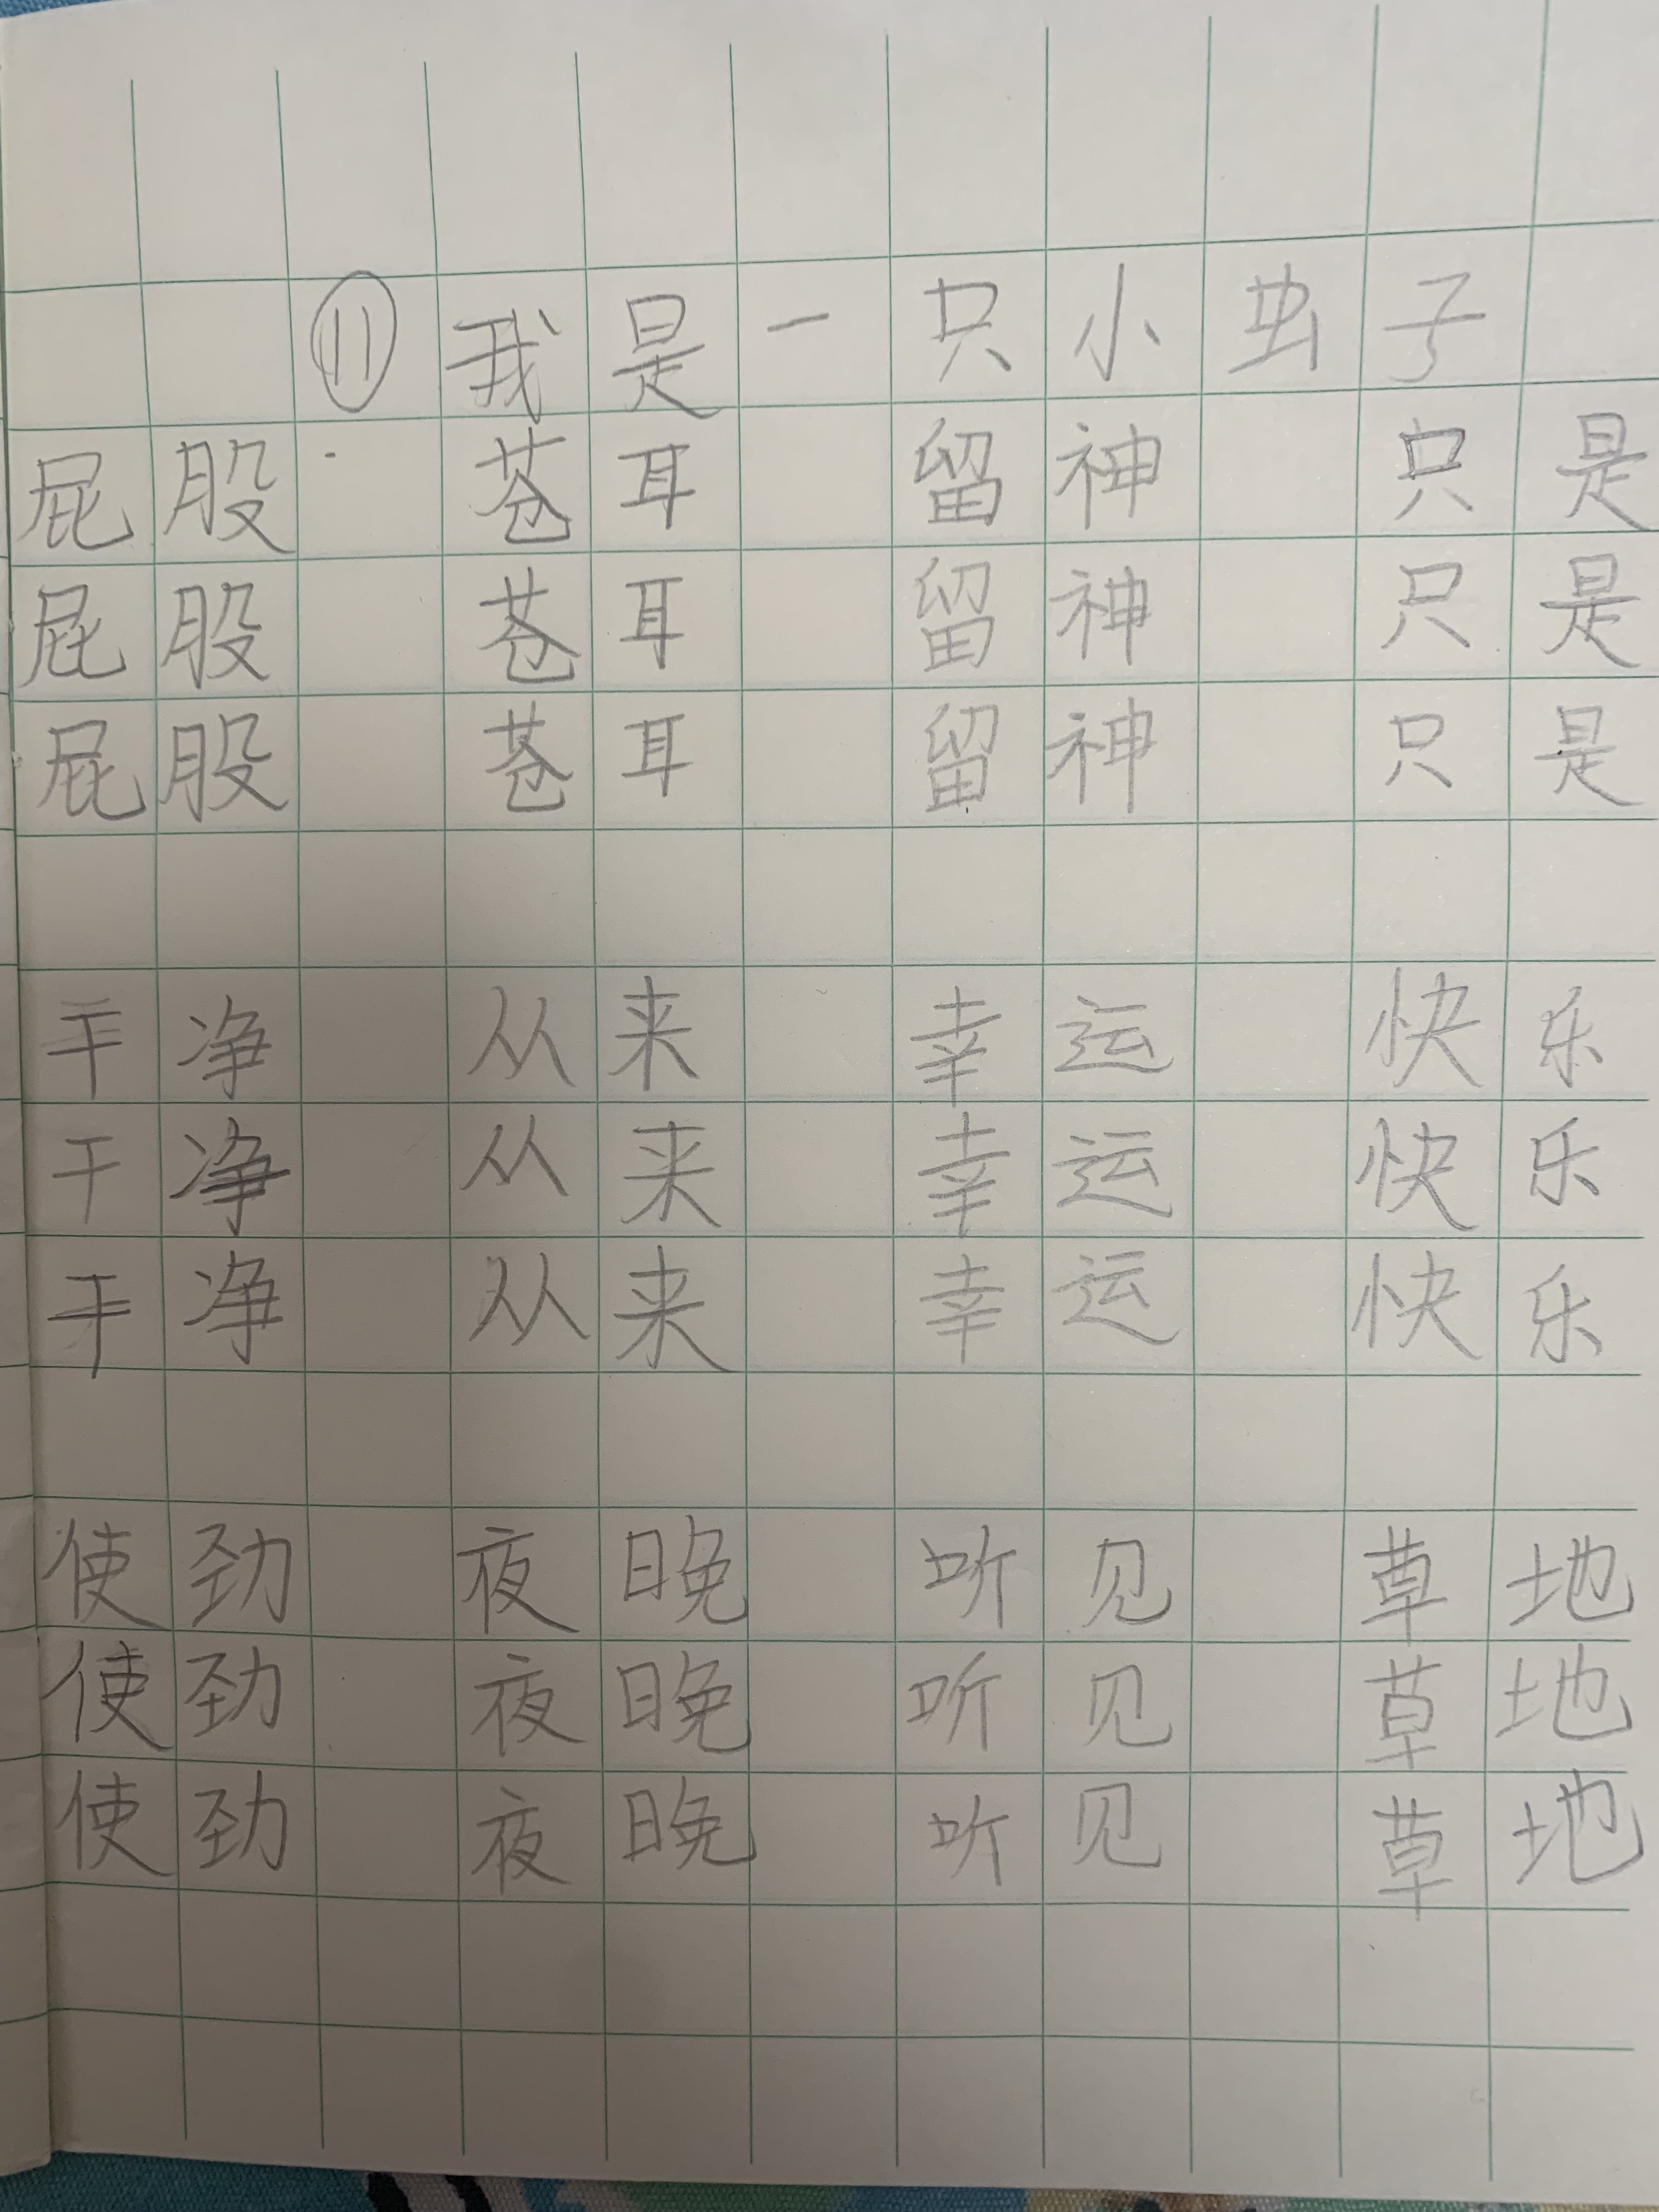 ⑪我是一只小虫子
屁股 苍耳 留神 只是
屁股 苍耳 留神 只是
屁股 苍耳 留神 只是
干净 从来 幸运 快乐
干净 从来 幸运 快乐
干净 从来 幸运 快乐
使劲 夜晚 听见 草地
使劲 夜晚 听见 草地
使劲 夜晚 听见 草地